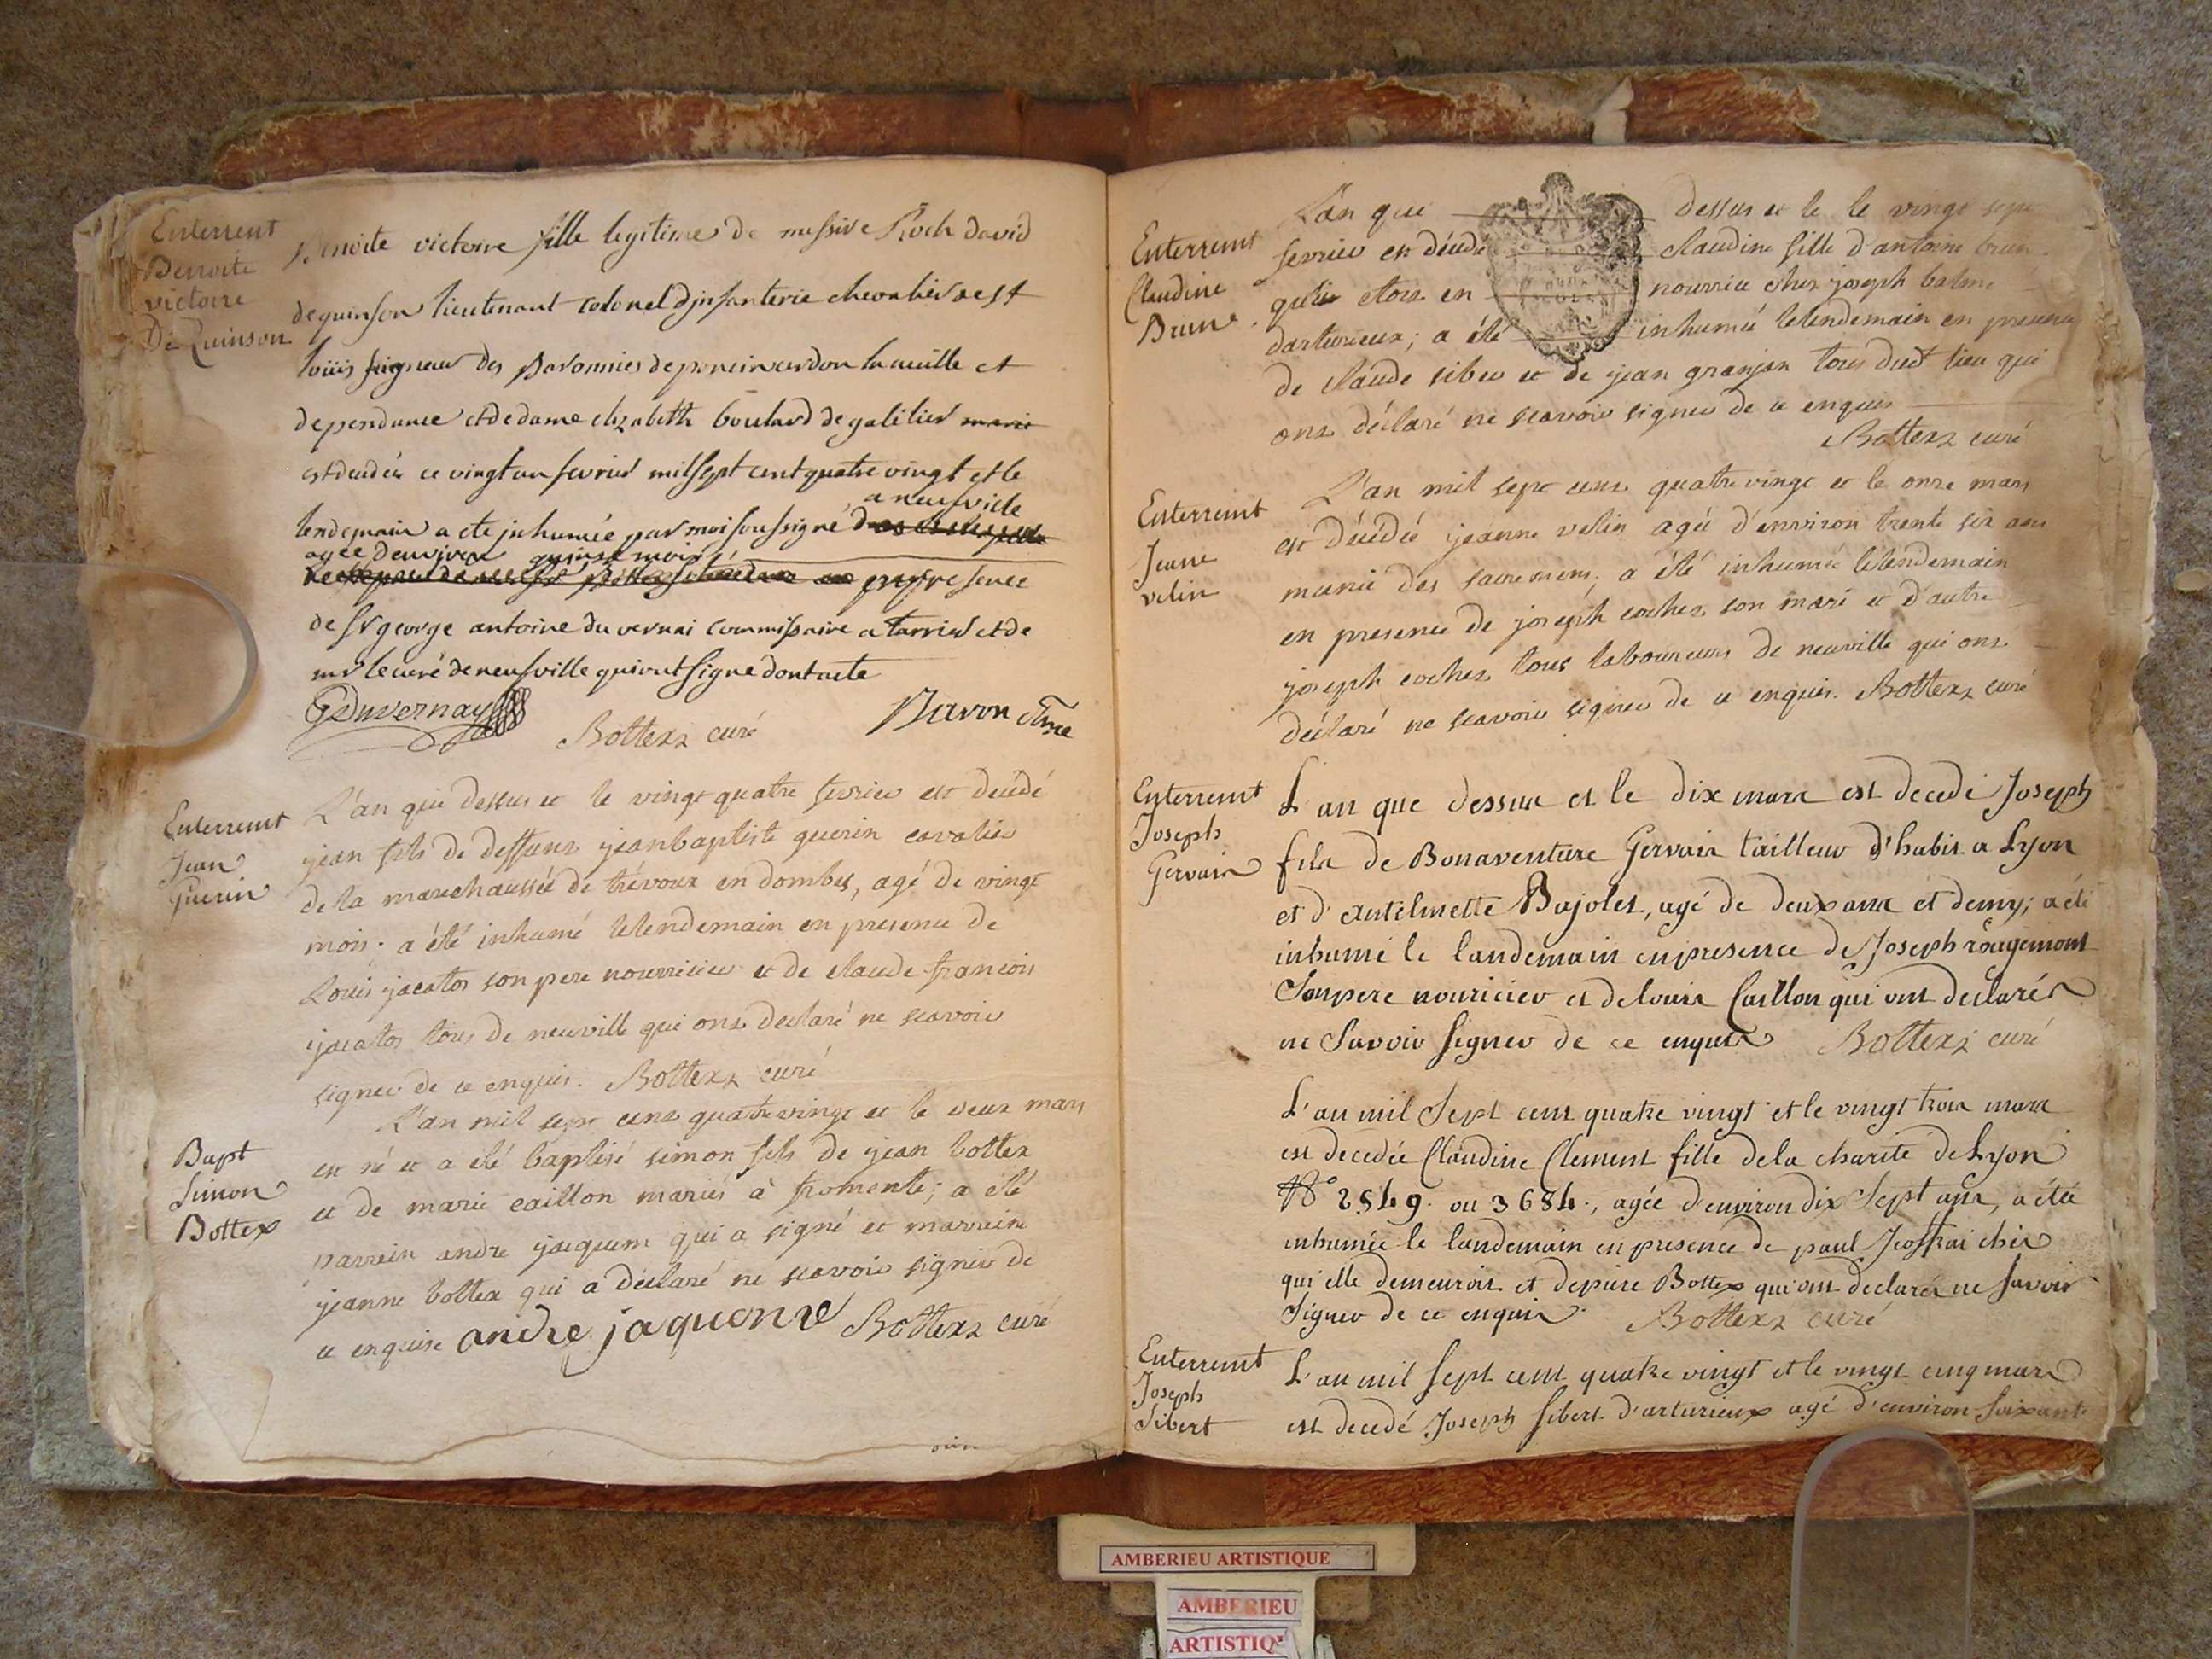 Enterrent
Benoite
victoire
De Quinson
Benoite victoire fille legitime de messire Roch david
de quinson lieutenant colonel d'jnfanterie chevalier de st
loüis seigneur des Baronnies de poncin cerdon la cueille et
dependance et de dame elizabeth boulard de gatelier
est decedée ce vingt un fevrier mil sept cent quatre vingt et le
a neufville
lendemain a ete jnhumée par moi soussigné
agée denviron quinse mois
en presence
de sr george antoine duvernai commissaire a tarrier et de
mr le curé de neufville qui ont signé dont acte
GDuvernay
Bottex curé
Enterremt
Jean
Guerin
L'an que dessus et le vingt quatre fevrier est decédé
jean fils de deffunt jean baptiste guerin cavalier
de la marechaussée de trévoux en dombes, agé de vingt
mois. a été inhumé le lendemain en presence de
Louis jacatos son pere nourricier et de claude francois
jacatos tous de neuville qui ont declaré ne scavoir
signer de ce enquis. Bottex curé
Bapt
Simon
Bottex
L'an mil sept cent quatre vingt et le deux mars
est né et a été baptisé simon fils de jean bottex
et de marie caillon mariés à fromente; a été
parrein andre jacquem qui a signé et marreine
jeanne bottex qui a déclaré ne scavoir signer de
ce enquise andre jaquome Bottex curé
Enterremt
Claudine
Brune
L'an que dessus et le le vingt sept
fevrier est décédé claudine fille d'antoine brun
qu'il etoit en nourrice chez joseph balme
d'arturieux; a été inhumée le lendemain en presence
de claude siber et de jean granjan tous dudt lieu qui
ont déclaré ne scavoir signer de ce enquis
Bottex curé
Enterremt
Jeane
velin
L'an mil sept cent quatre vingt et le onze mars
est décédée jeanne velin agée d'environ trente six ans
munie des sacremens, a été inhumée le lendemain
en presence de joseph cochet son mari et d'autre
joseph cochet tous laboureurs de neuville qui ont
déclaré ne scavoir signer de ce enquis. Bottex curé
Enterremt
Joseph
Gervais
L'an que dessus et le dix mars est decedé Joseph
fils de Bonaventure Gervais tailleur d'habit a Lyon
et d'Antelmette Bajolet, agé de deux ans et demy; a été
inhumé le landemain en presence de Joseph rougemont
Son pere nouricier et de Louis Caillon qui ont declarés
ne Savoir signer de ce enquis Bottex curé
L'an mil Sept cent quatre vingt et le vingt trois mars
est decedée Claudine Clement fille de la charité de Lyon
No 2849. ou 3684., agée d'environ dix Sept ans, a étée
inhumée le landemain en presence de paul Jeoffrai chés
qui elle demeuroit et de piere Bottex qui ont declarés ne savoir
signer de ce enquis. Bottex curé
Enterremt
Joseph
Sibert
L'an mil sept cent quatre vingt et le vingt cinq mars
est decedé Joseph sibert d'arturieux agé d'environ soixante
AMBERIEU ARTISTIQUE
AMBERIEU
ARTISTIQ